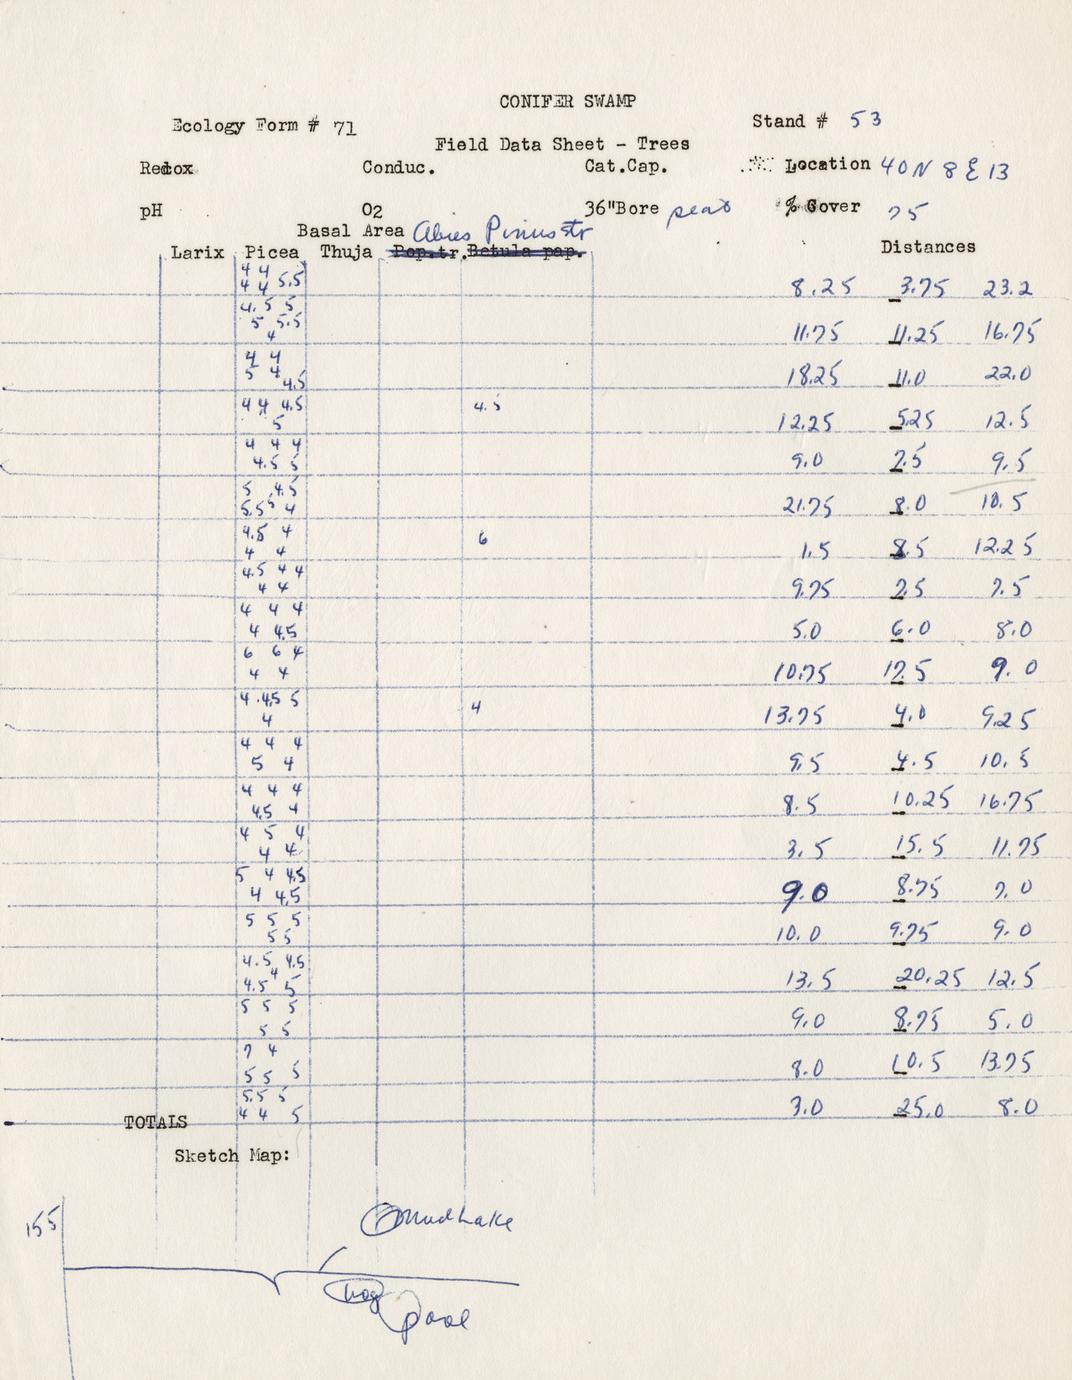 CONIFER SWAMP
Ecology Form # 71 Stand # 53
Field Data Sheet - Trees
Redox Conduc. Cat.Cap. Location 40N 8E 13
pH O2 36"Bore peat % Cover 75
Basal Area Abies Pinus str
Larix Picea Thuja Pop.tr. Betula pap. Distances
4 4
4 4 5.5 8.25 3.75 23.2
4.5 5
5 5.5
4 11.75 11.25 16.75
4 4
5 4
4.5 18.25 11.0 22.0
4 4 4.5 4.5
5 12.25 5.25 12.5
4 4 4
4.5 5 9.0 7.5 9.5
5 4.5
5.5 5 4 21.75 8.0 10.5
4.5 4 6
4 4 1.5 8.5 12.25
4.5 4 4
4 4 9.75 7.5 7.5
4 4 4
4 4.5 5.0 6.0 8.0
6 6 4
4 4 10.75 17.5 9.0
4 4.5 5 4
4 13.75 4.0 9.25
4 4 4
5 4 9.5 4.5 10.5
4 4 4
4.5 4 8.5 10.25 16.75
4 5 4
4 4 3.5 15.5 11.75
5 4 4.5
4 4.5 9.0 8.75 7.0
5 5 5
5 5 10.0 9.75 9.0
4.5 4.5
4
4.5 5 13.5 20.25 12.5
5 5 5
5 5 9.0 8.75 5.0
7 4
5 5 5 8.0 10.5 13.75
5.5 5
4 4 5 3.0 25.0 8.0
TOTALS
Sketch Map:
155 Mud Lake
bog
pool